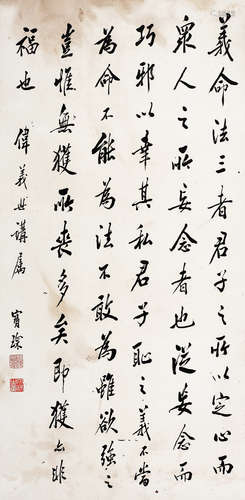 義命法三者君子之所以定心而
眾人之所妄念者也從妄念而
巧邪以幸其私君子恥之義不當
為命不能為法不敢為雖欲強之
豈惟無獲所喪多矣即獲亦非
福也
偉義世講屬
寶瑜